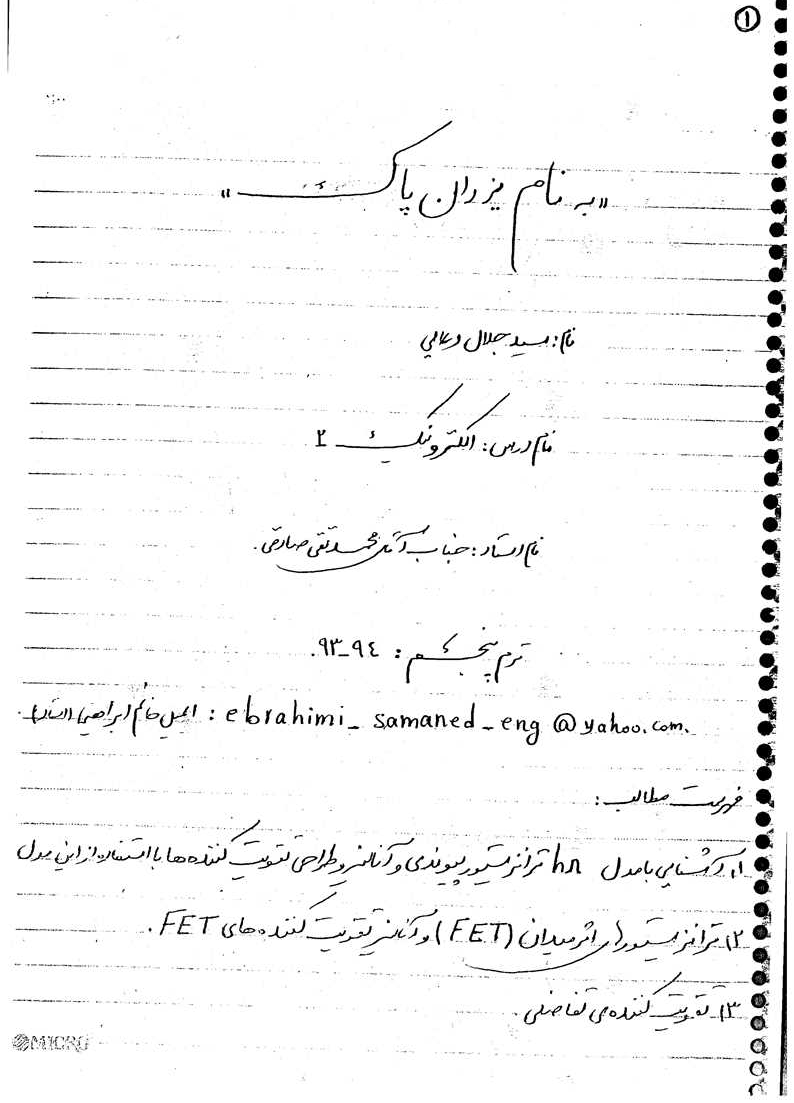 ①
«به نام یزدان پاک»
نام: سید جلال
نام درس: الکترونیک ۲
نام استاد: جناب آقای محمد تقی صادقی.
ترم پنجم: ۹۳-۹٤.
ایمیل خانم ابراهیمی (استاد): ebrahimi_samaned_eng@yahoo.com.
فهرست مطالب:
۱) آشنایی با مدل hπ ترانزیستور پیوندی و آنالیز و طراحی تقویت کننده ها با استفاده از این مدل
۲) ترانزیستورهای اثر میدان (FET) و آنالیز تقویت کننده های FET.
۳) تقویت کننده ی تفاضلی.
MICRO